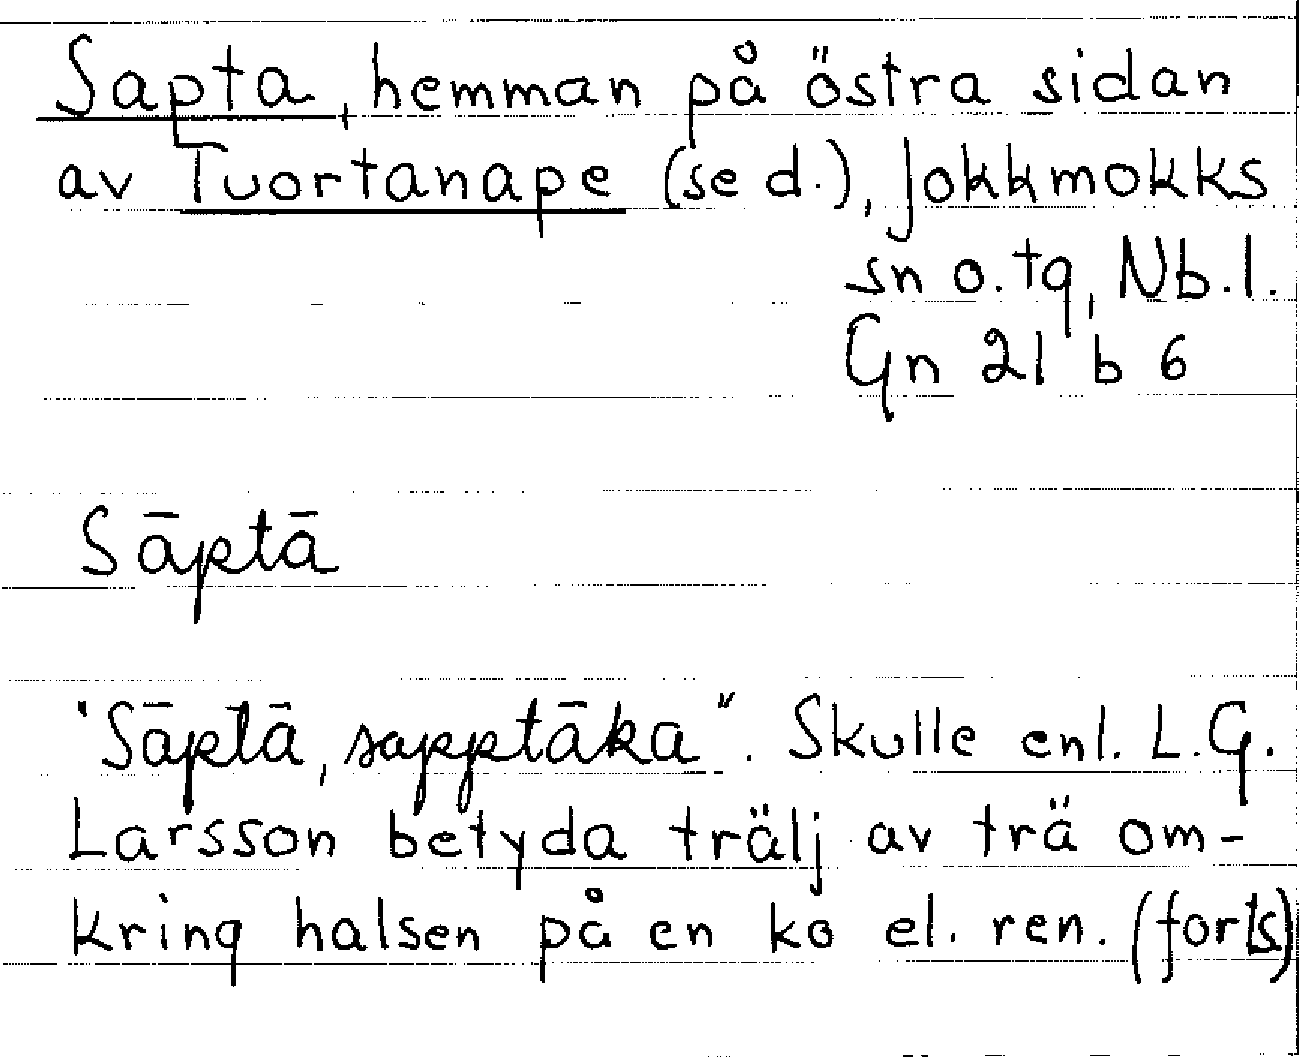 Sapta, hemman på östra sidan
av Tuortanape (se d.), Jokkmokks
sn o. tg, Nb. l.
Gn 21 b 6
Sāptā
"Sāptā, sapptāka". Skulle enl. L.G.
Larsson betyda trälj av trä om-
kring halsen på en ko el. ren. (forts)